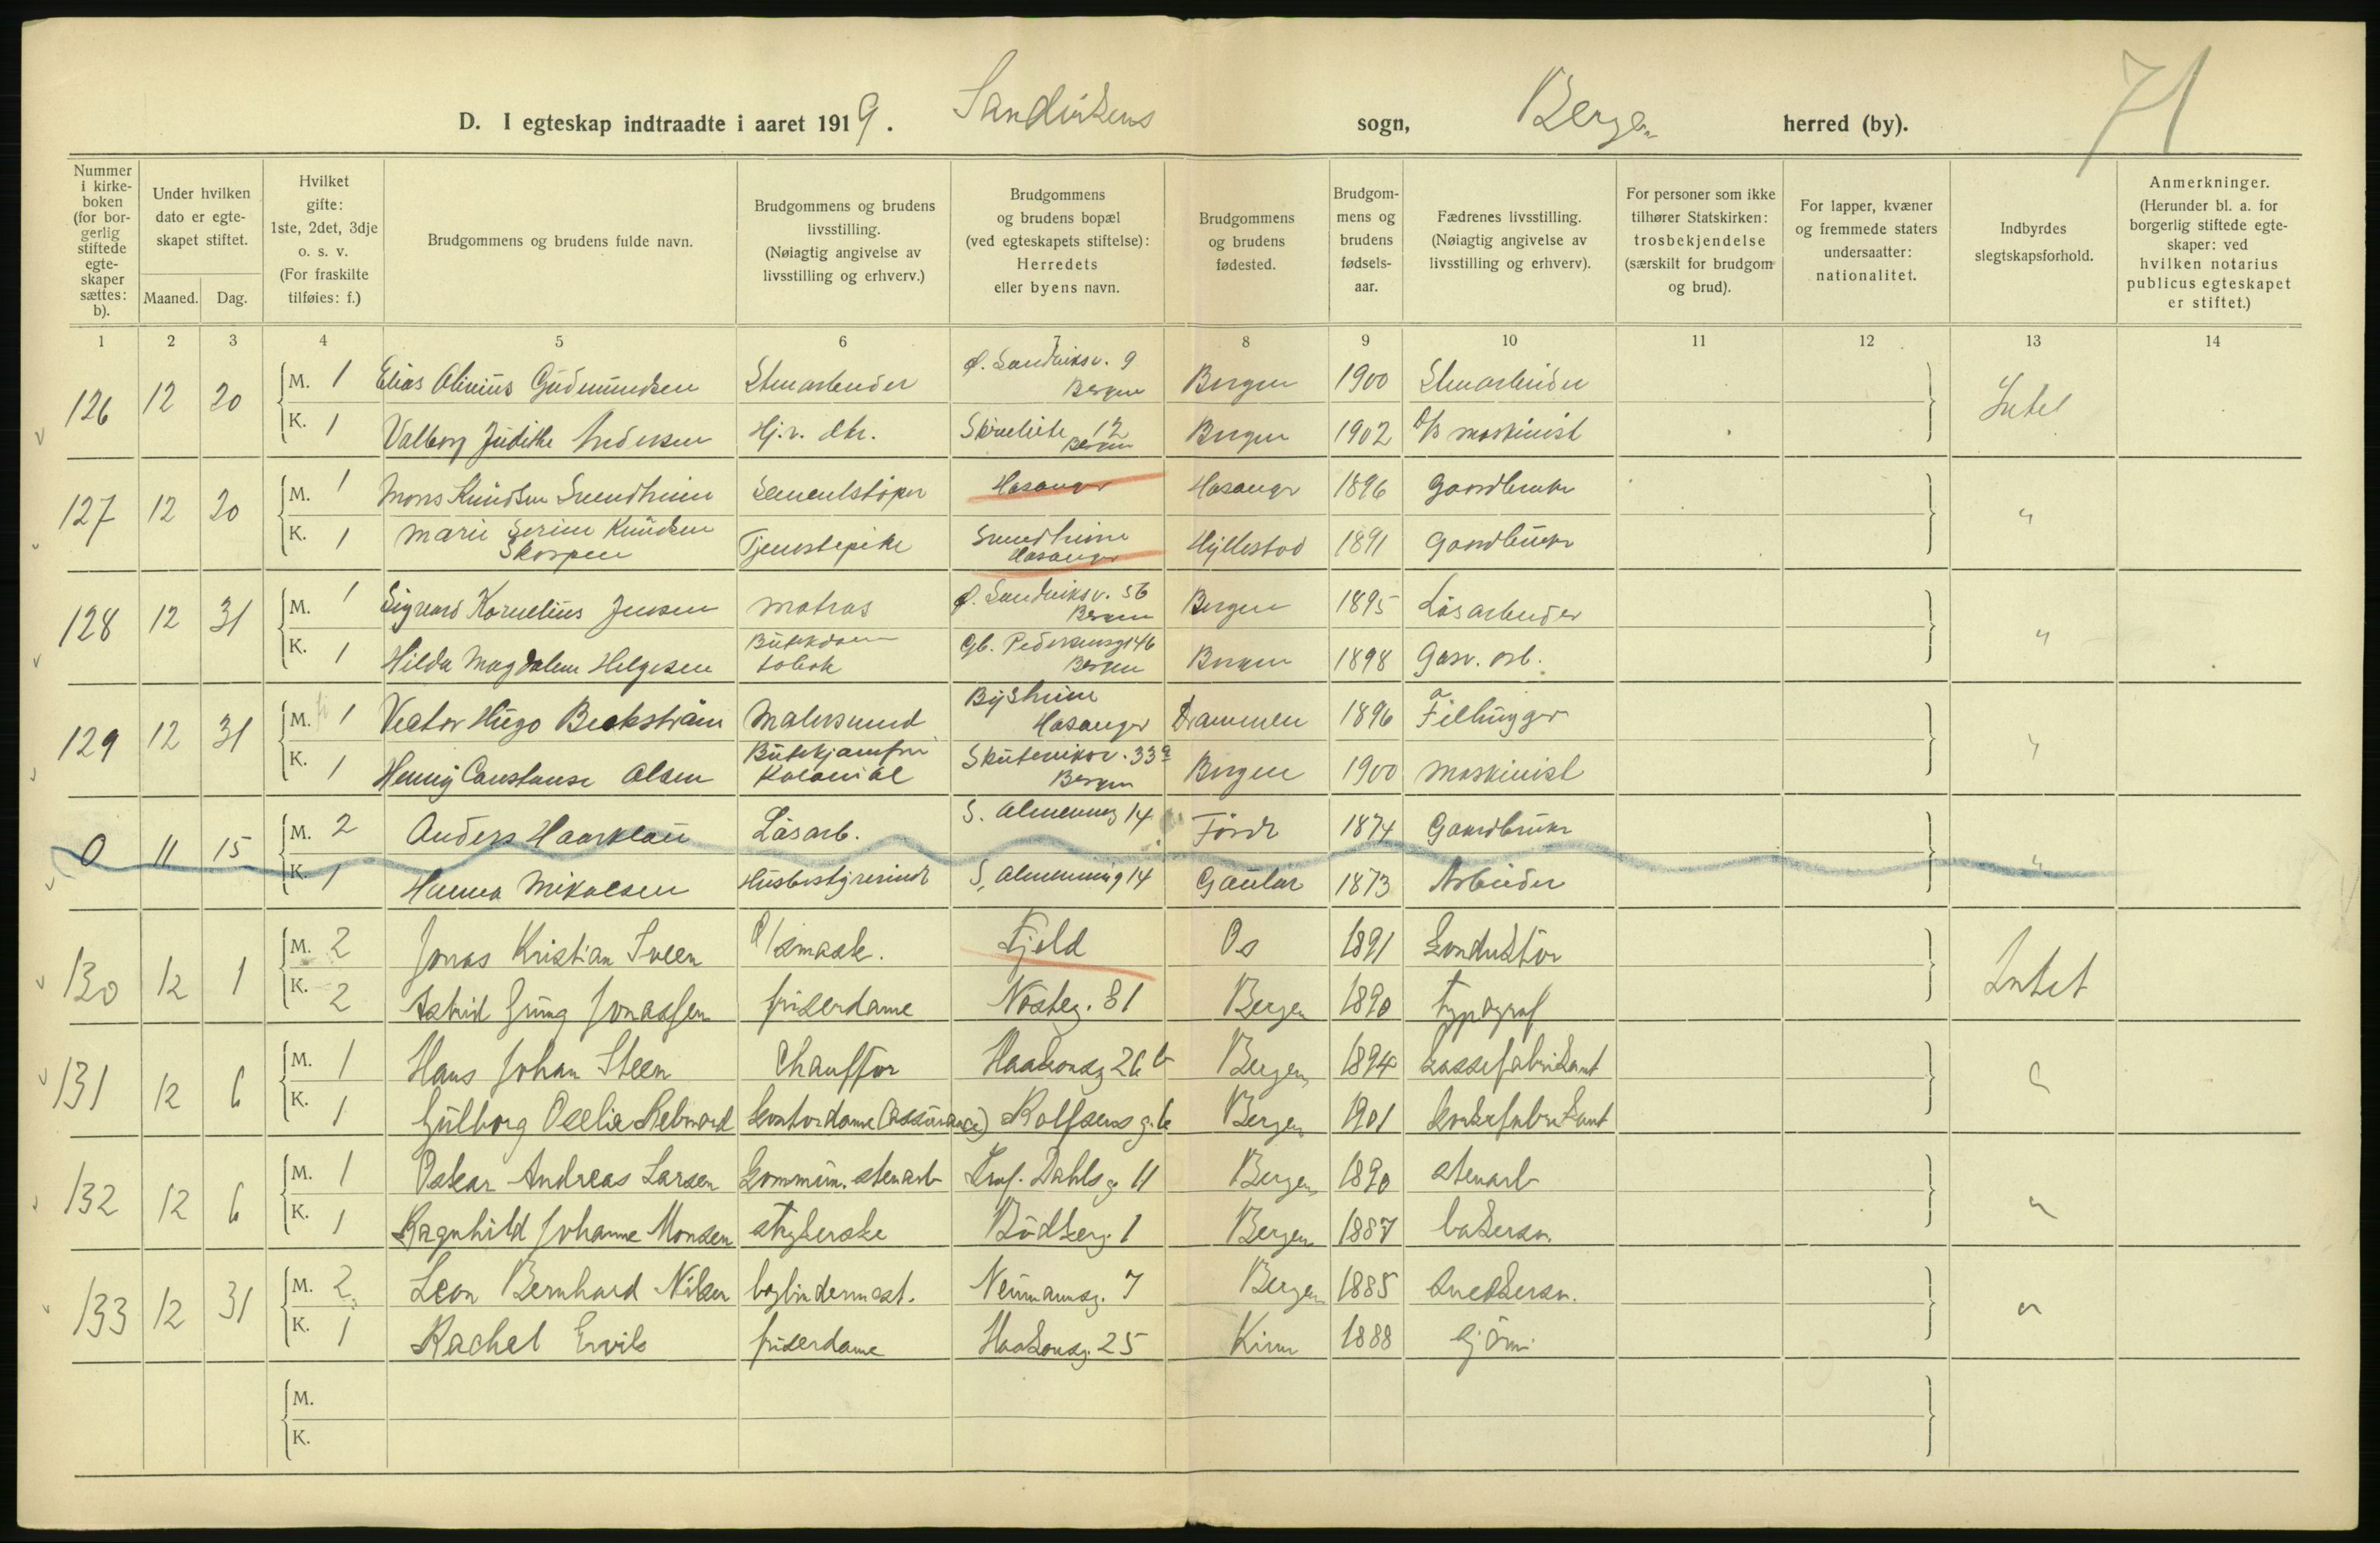 71
D. I egteskap indtraadte i aaret 1919. Sandvikens sogn, Bergen herred (by).
Nummer i kirke- boken (for bor- gerlig stiftede egte- skaper sættes: b).
Under hvilken dato er egte- skapet stiftet.
Maaned. Dag.
Hvilket gifte: 1ste, 2det, 3dje o. s. v. (For fraskilte tilføies: f.)
Brudgommens og brudens fulde navn.
Brudgommens og brudens livsstilling. (Nøiagtig angivelse av livsstilling og erhverv.)
Brudgommens og brudens bopæl (ved egteskapets stiftelse): Herredets eller byens navn.
Brudgommens og brudens fødested.
Brudgom- mens og brudens fødsels- aar.
Fædrenes livsstilling. (Nøiagtig angivelse av livsstilling og erhverv).
For personer som ikke tilhører Statskirken: trosbekjendelse (særskilt for brudgom og brud).
For lapper, kvæner og fremmede staters undersaatter: nationalitet.
Indbyrdes slegtskapsforhold.
Anmerkninger. (Herunder bl. a. for borgerlig stiftede egte- skaper: ved hvilken notarius publicus egteskapet er stiftet.)
1 2 3 4 5 6 7 8 9 10 11 12 13 14
126 12 20 M. 1 Elias Olinius Gudmundsen Stenarbeider Ø. Sandviksv. 9 Bergen Bergen 1900 Stenarbeider Intet
K. 1 Valborg Judithe Andersen Hj.v. dtr. Skivebakk 12 Bergen Bergen 1902 D/S maskinist
127 12 20 M. 1 Mons Knudsen Sundheim Sementstøper Hosanger Hosanger 1896 Gaardbruker "
K. 1 Marie Serine Knudsen Skorpen Tjenestepike Sundheim Hosanger Hyllestad 1891 Gaardbruker
128 12 31 M. 1 Sigvard Kornelius Jensen matros Ø. Sandviksv. 56 Bergen Bergen 1895 Løsarbeider "
K. 1 Hilda Magdalene Helgesen Butikdame tobak Gb. Pedersensg 146 Bergen Bergen 1898 Gasv. arb.
129 12 31 M. 1 Victor Hugo Beckstrøm Malersvend Bysheim Hosanger Drammen 1896 Filhugger "
K. 1 Henny Constanse Olsen Butikjomfru Kolonial Skuteviksv. 33a Bergen Bergen 1900 maskinist
0 11 15 M. 2 Anders Haarklau Løsarb. S. Almenning 14 Førde 1874 Gaardbruker "
K. 1 Hanna Mikalsen Husbestyrerinde S. Almenning 14 Gaular 1873 Arbeider
130 12 1 M. 2 Jonas Kristian Sveen D/Smask. Fjeld Os 1891 konduktør Intet
K. 2 Astrid Jonassen friserdame Nosteg. 81 Bergen 1890 typograf
131 12 6 M. 1 Hans Johan Steen Chauffør Haakonsg 26 b Bergen 1894 kassefabrikant "
K. 1 Gulborg Oselie Rebnord kontordame (Assurance) Rolfsens g. 6 Bergen 1901 korkefabrikant
132 12 6 M. 1 Oskar Andreas Larsen kommun. stenarb Prof. Dahlsg 11 Bergen 1890 stenarb "
K. 1 Ragnhild Johanne Monsen strykerske Bødkerg. 1 Bergen 1887 bakersv.
133 12 31 M. 2 Leon Bernhard Nilsen bogbindermest. Neumannsg. 7 Bergen 1885 snekkersv. "
K. 1 Rachel Ervik friserdame Haakonsg. 25 Kinn 1888 gjørm.
M.
K.